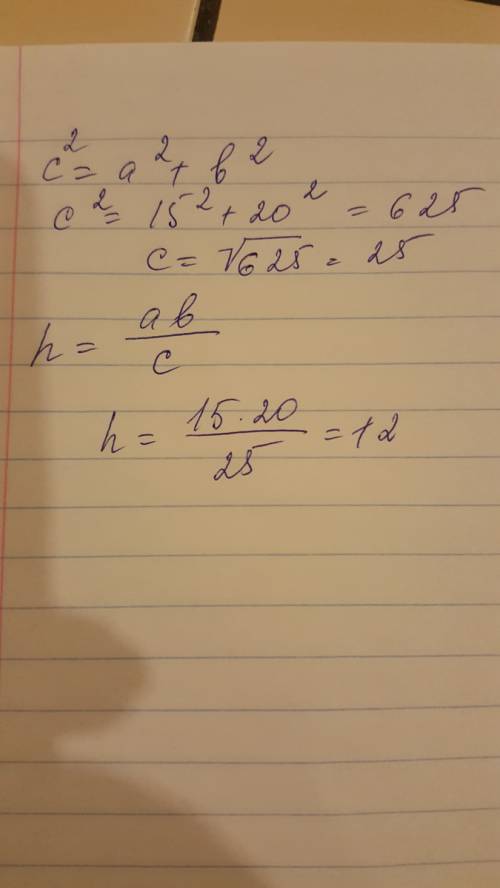 c² = a² + b²
c² = 15² + 20² = 625
c = √625 = 25
h = ab/c
h = 15·20/25 = 12